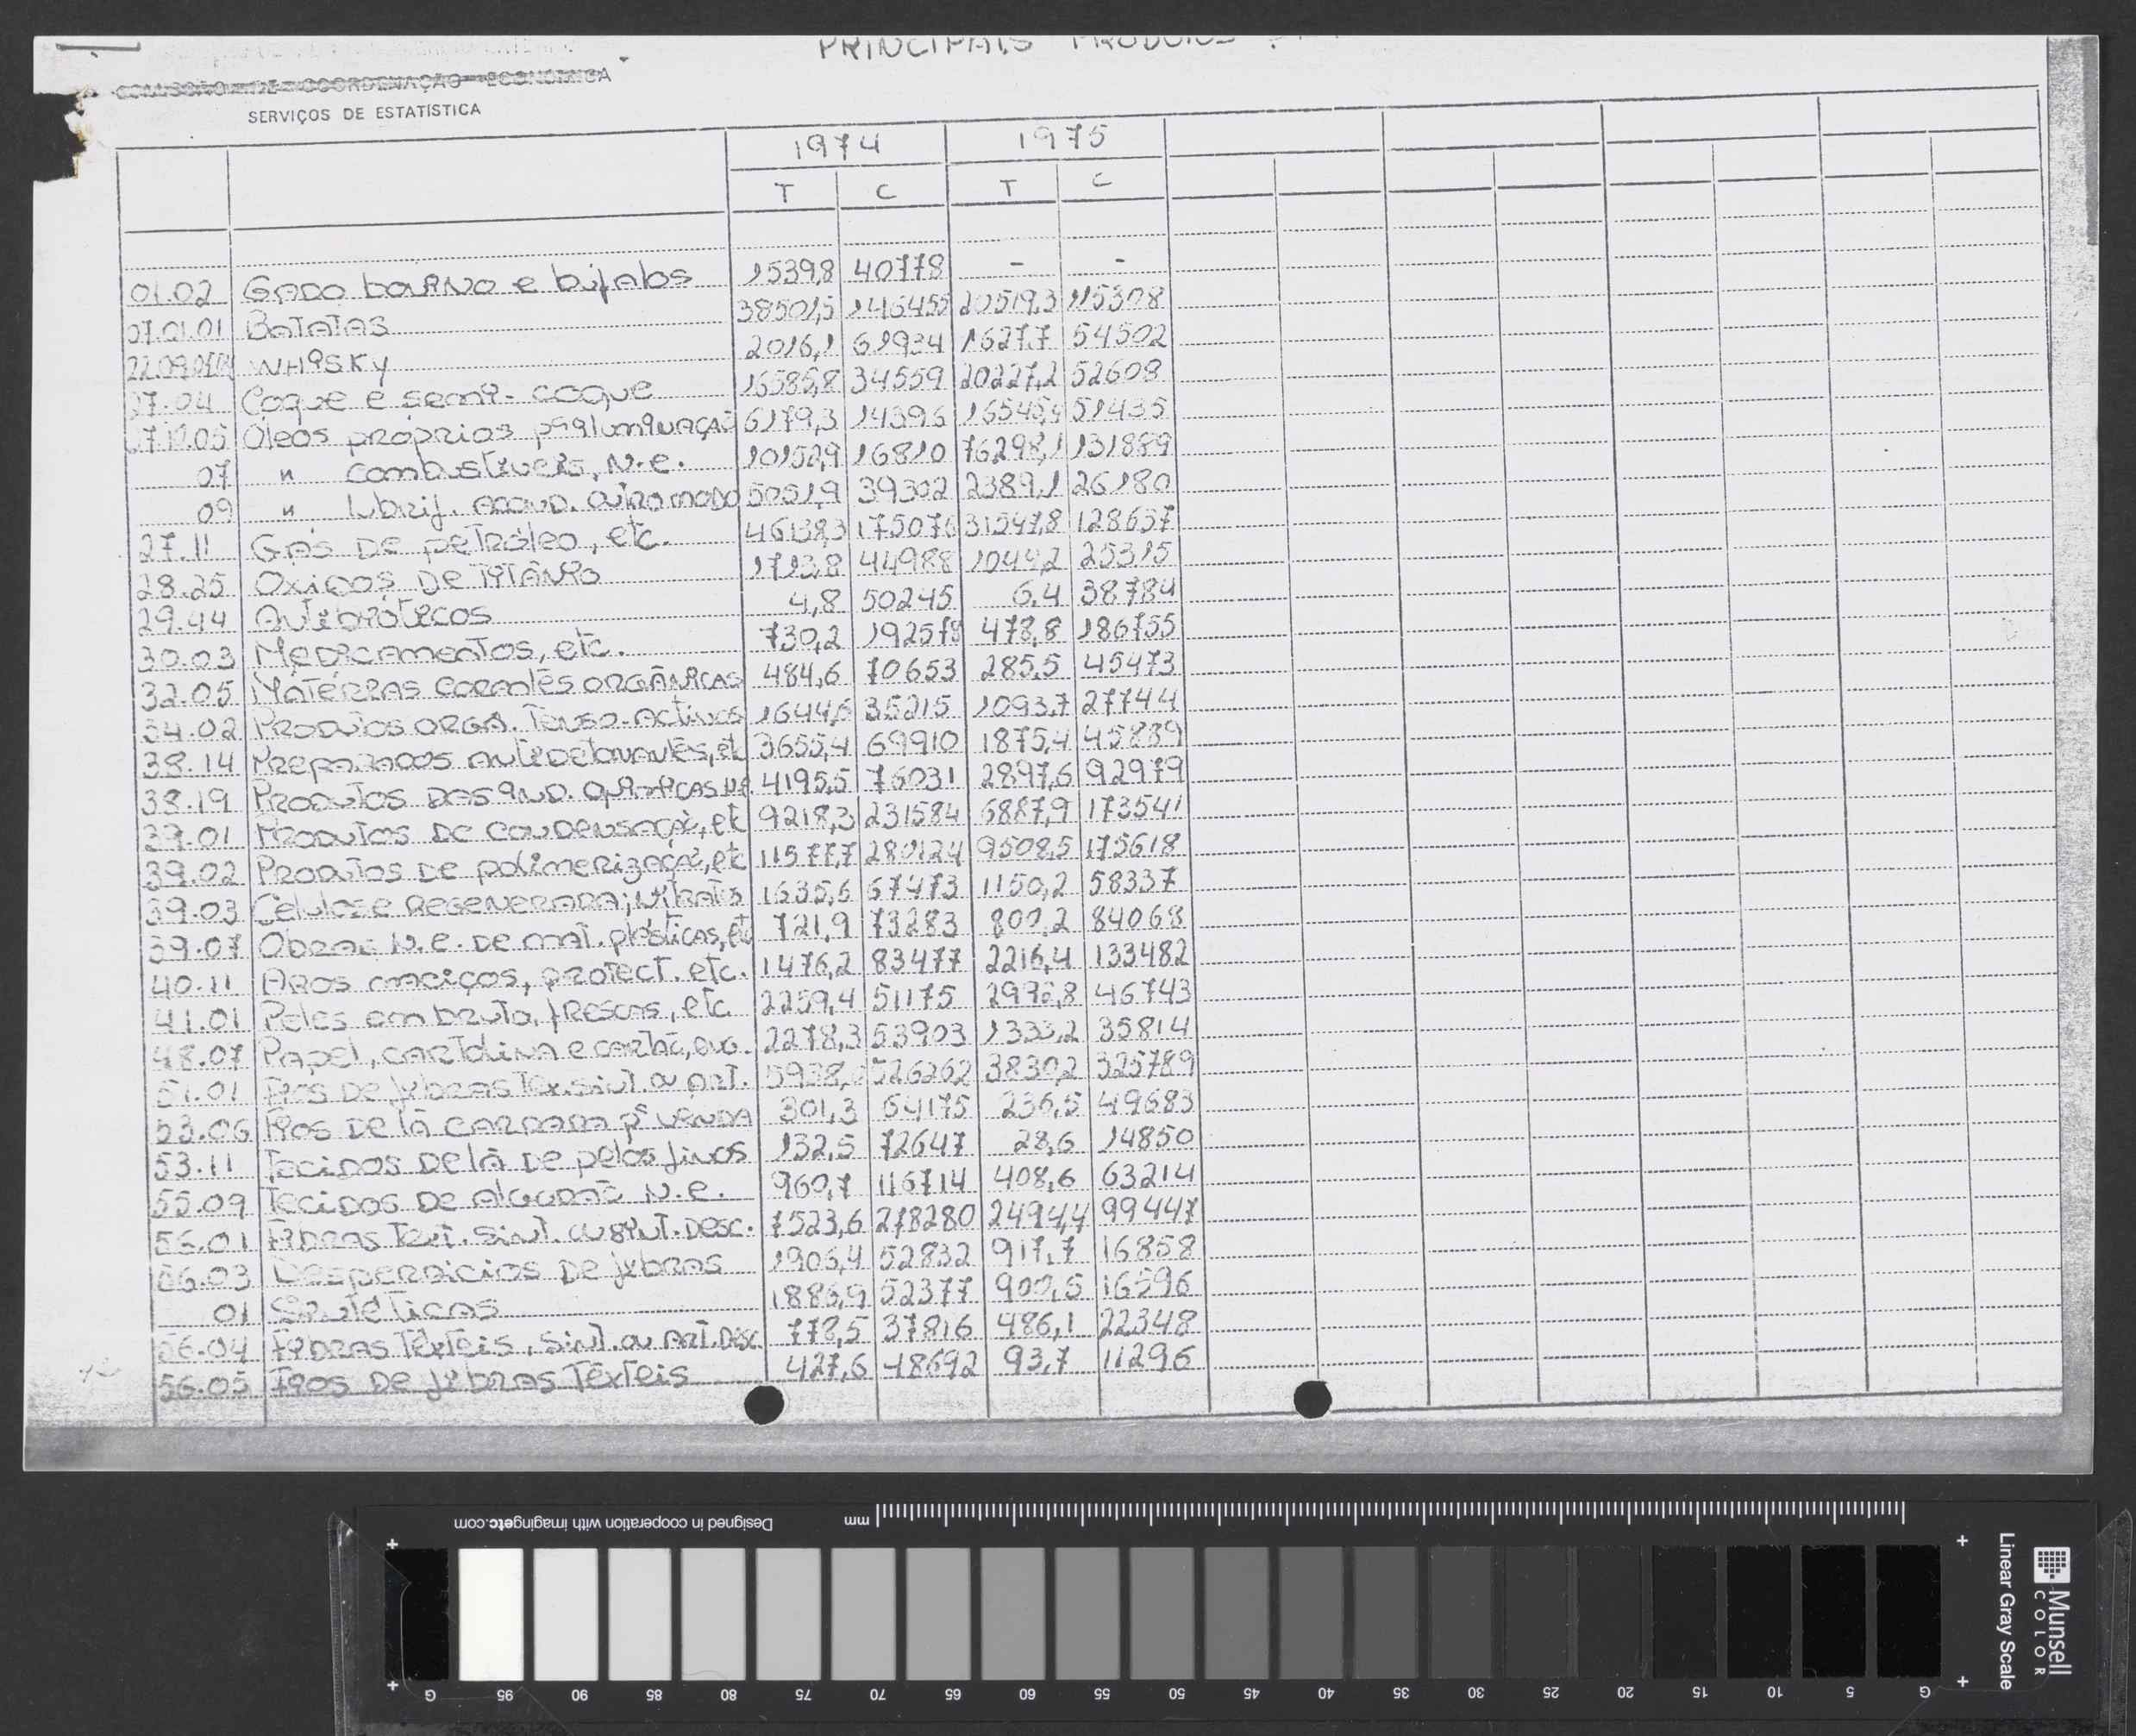 PRINCIPAIS PRODUTOS
COMISSÃO DE COORDENAÇÃO ECONÓMICA
SERVIÇOS DE ESTATÍSTICA
1974 1975
T C T C
01.02 Gado bovino e búfalos 15398 40778 - -
07.01.01 Batatas 38501,5 146455 20519,3 115308
22.09 Whisky 2016,1 61934 1627,7 54502
27.04 Coque e semi-coque 16585,8 34559 20227,2 52608
05 Óleos proprios pª iluminação 6179,3 14396 16545,4 51435
07 " combustíveis, N.e. 10152,9 16810 76298,1 131889
09 " lubrif. acond. outro modo 5051,9 39302 2389,1 26180
27.11 Gás de petróleo, etc. 46138,3 175076 31547,8 128657
28.25 Oxidos de titânio 1713,8 44988 1044,2 25315
29.44 Antibióticos 4,8 50245 6,4 38784
30.03 Medicamentos, etc. 730,2 192578 478,8 186755
32.05 Matérias corantes orgânicas 484,6 70653 285,5 45473
34.02 Produtos orgâ. tenso-activos 1644,6 35215 1093,7 27744
38.14 Preparados antidetonantes, etc 3655,4 69910 1875,4 45839
38.19 Produtos das ind. químicas N.e 4195,5 76031 2897,6 92979
39.01 Produtos de condensação, etc 9218,3 231584 6887,9 173541
39.02 Produtos de polimerização, etc 11577,7 280124 9508,5 175618
39.03 Celulose regenerada; nitrato 1635,6 67473 1150,2 58337
39.07 Obras N.e. de mat. plásticas, etc 721,9 73283 800,2 84068
40.11 Aros maciços, protect. etc. 1476,2 83477 2216,4 133482
41.01 Peles em bruto, frescas, etc 2259,4 51175 2992,8 46743
48.07 Papel, cartolina e cartão, 2278,3 53903 1333,2 35814
51.01 Fios de fibras tex. sint. ou art. 5938, 526262 3830,2 325789
53.06 Fios de lã cardada pª venda 301,3 64175 236,5 49683
53.11 Tecidos de lã de pelos finos 132,5 72647 28,6 14850
55.09 Tecidos de algodão N.e. 960,7 116714 408,6 63214
56.01 Fibras text. sint. ou sint. desc. 7523,6 278280 2494,4 99447
56.03 Desperdicios de fibras 1906,4 52832 917,7 16858
01 Sintéticas 1886,9 52377 900,5 16596
56.04 Fibras têxteis, sint. ou art. desc 778,5 37816 486,1 22348
56.05 Fios de fibras têxteis 427,6 48692 93,7 11296
Designed in cooperation with imagingetc.com
mm
Linear Gray Scale
Munsell
COLOR
G 95 90 85 80 75 70 65 60 55 50 45 40 35 30 25 20 15 10 5 G